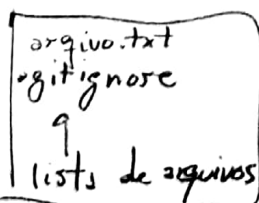 arqivo.txt
.gitignore
lista de arquivos